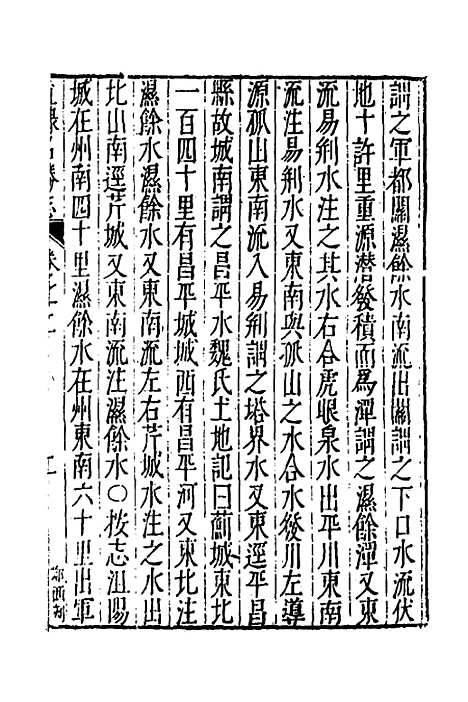 謂之軍都關濕餘水南流出關謂之下口水流伏
地十許里重源潛發積而為潭謂之濕餘潭又東
流易荆水注之其水右合虎眼泉水出平川東南
流注易荆水又東南與孤山之水合水發川左導
源孤山東南流入易荆謂之塔界水又東逕平昌
縣故城南謂之昌平水魏氏土地記曰薊城東北
一百四十里有昌平城城西有昌平河又東北注
濕餘水濕餘水又東南流左右芹城水注之水出
北山南逕芹城又東南流注濕餘水○按志沮陽
城在州南四十里濕餘水在州東南六十里出軍
名勝志
卷之